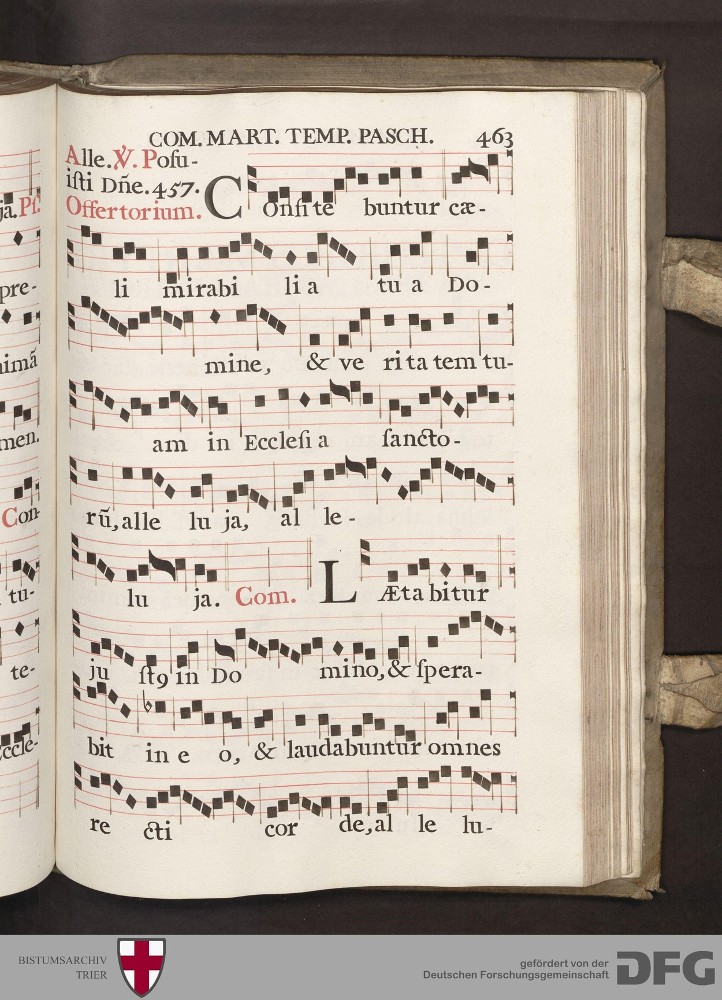 COM. MART. TEMP. PASCH. 463
Alle. ℣. Posu-
isti Dñe. 457.
Offertorium. COnfite buntur cæ-
li mirabi li a tu a Do-
mine, & ve ri ta tem tu-
am in Ecclesi a sancto-
rũ, alle lu ja, al le-
lu ja. Com. LÆta bitur
ju stꝰ in Do mino, & spera-
bit in e o, & laudabuntur omnes
re cti cor de, al le lu-
ja. Ps.
pre-
nimã
men.
Con-
tu-
te-
Eccle-
BISTUMSARCHIV
TRIER
gefördert von der
Deutschen Forschungsgemeinschaft
DFG